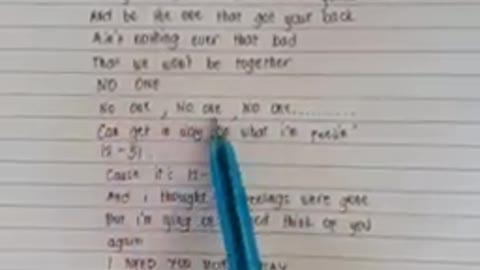 And be the one that got your back
Ain't nothing ever that bad
That we won't be together
NO ONE
No one , No one , No one..........
Can get in way of what i'm feelin'
12-51.
Cause it's 12-
And i thought feelings were gone
But i'm lying on bed think of you
again
I NEED YOU